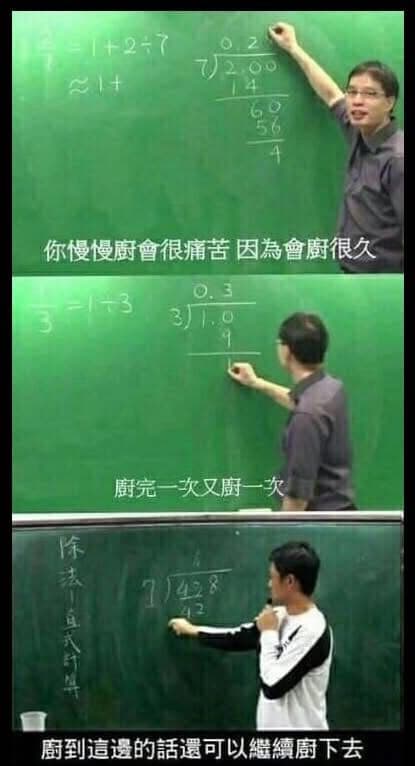 = 1 + 2 ÷ 7
≈ 1 +
0.2
7)2.00
14
60
56
4
你慢慢廚會很痛苦 因為會廚很久
1/3 = 1 ÷ 3
0.3
3)1.0
9
1
廚完一次又廚一次
除法-直式計算
7)428
42
廚到這邊的話還可以繼續廚下去